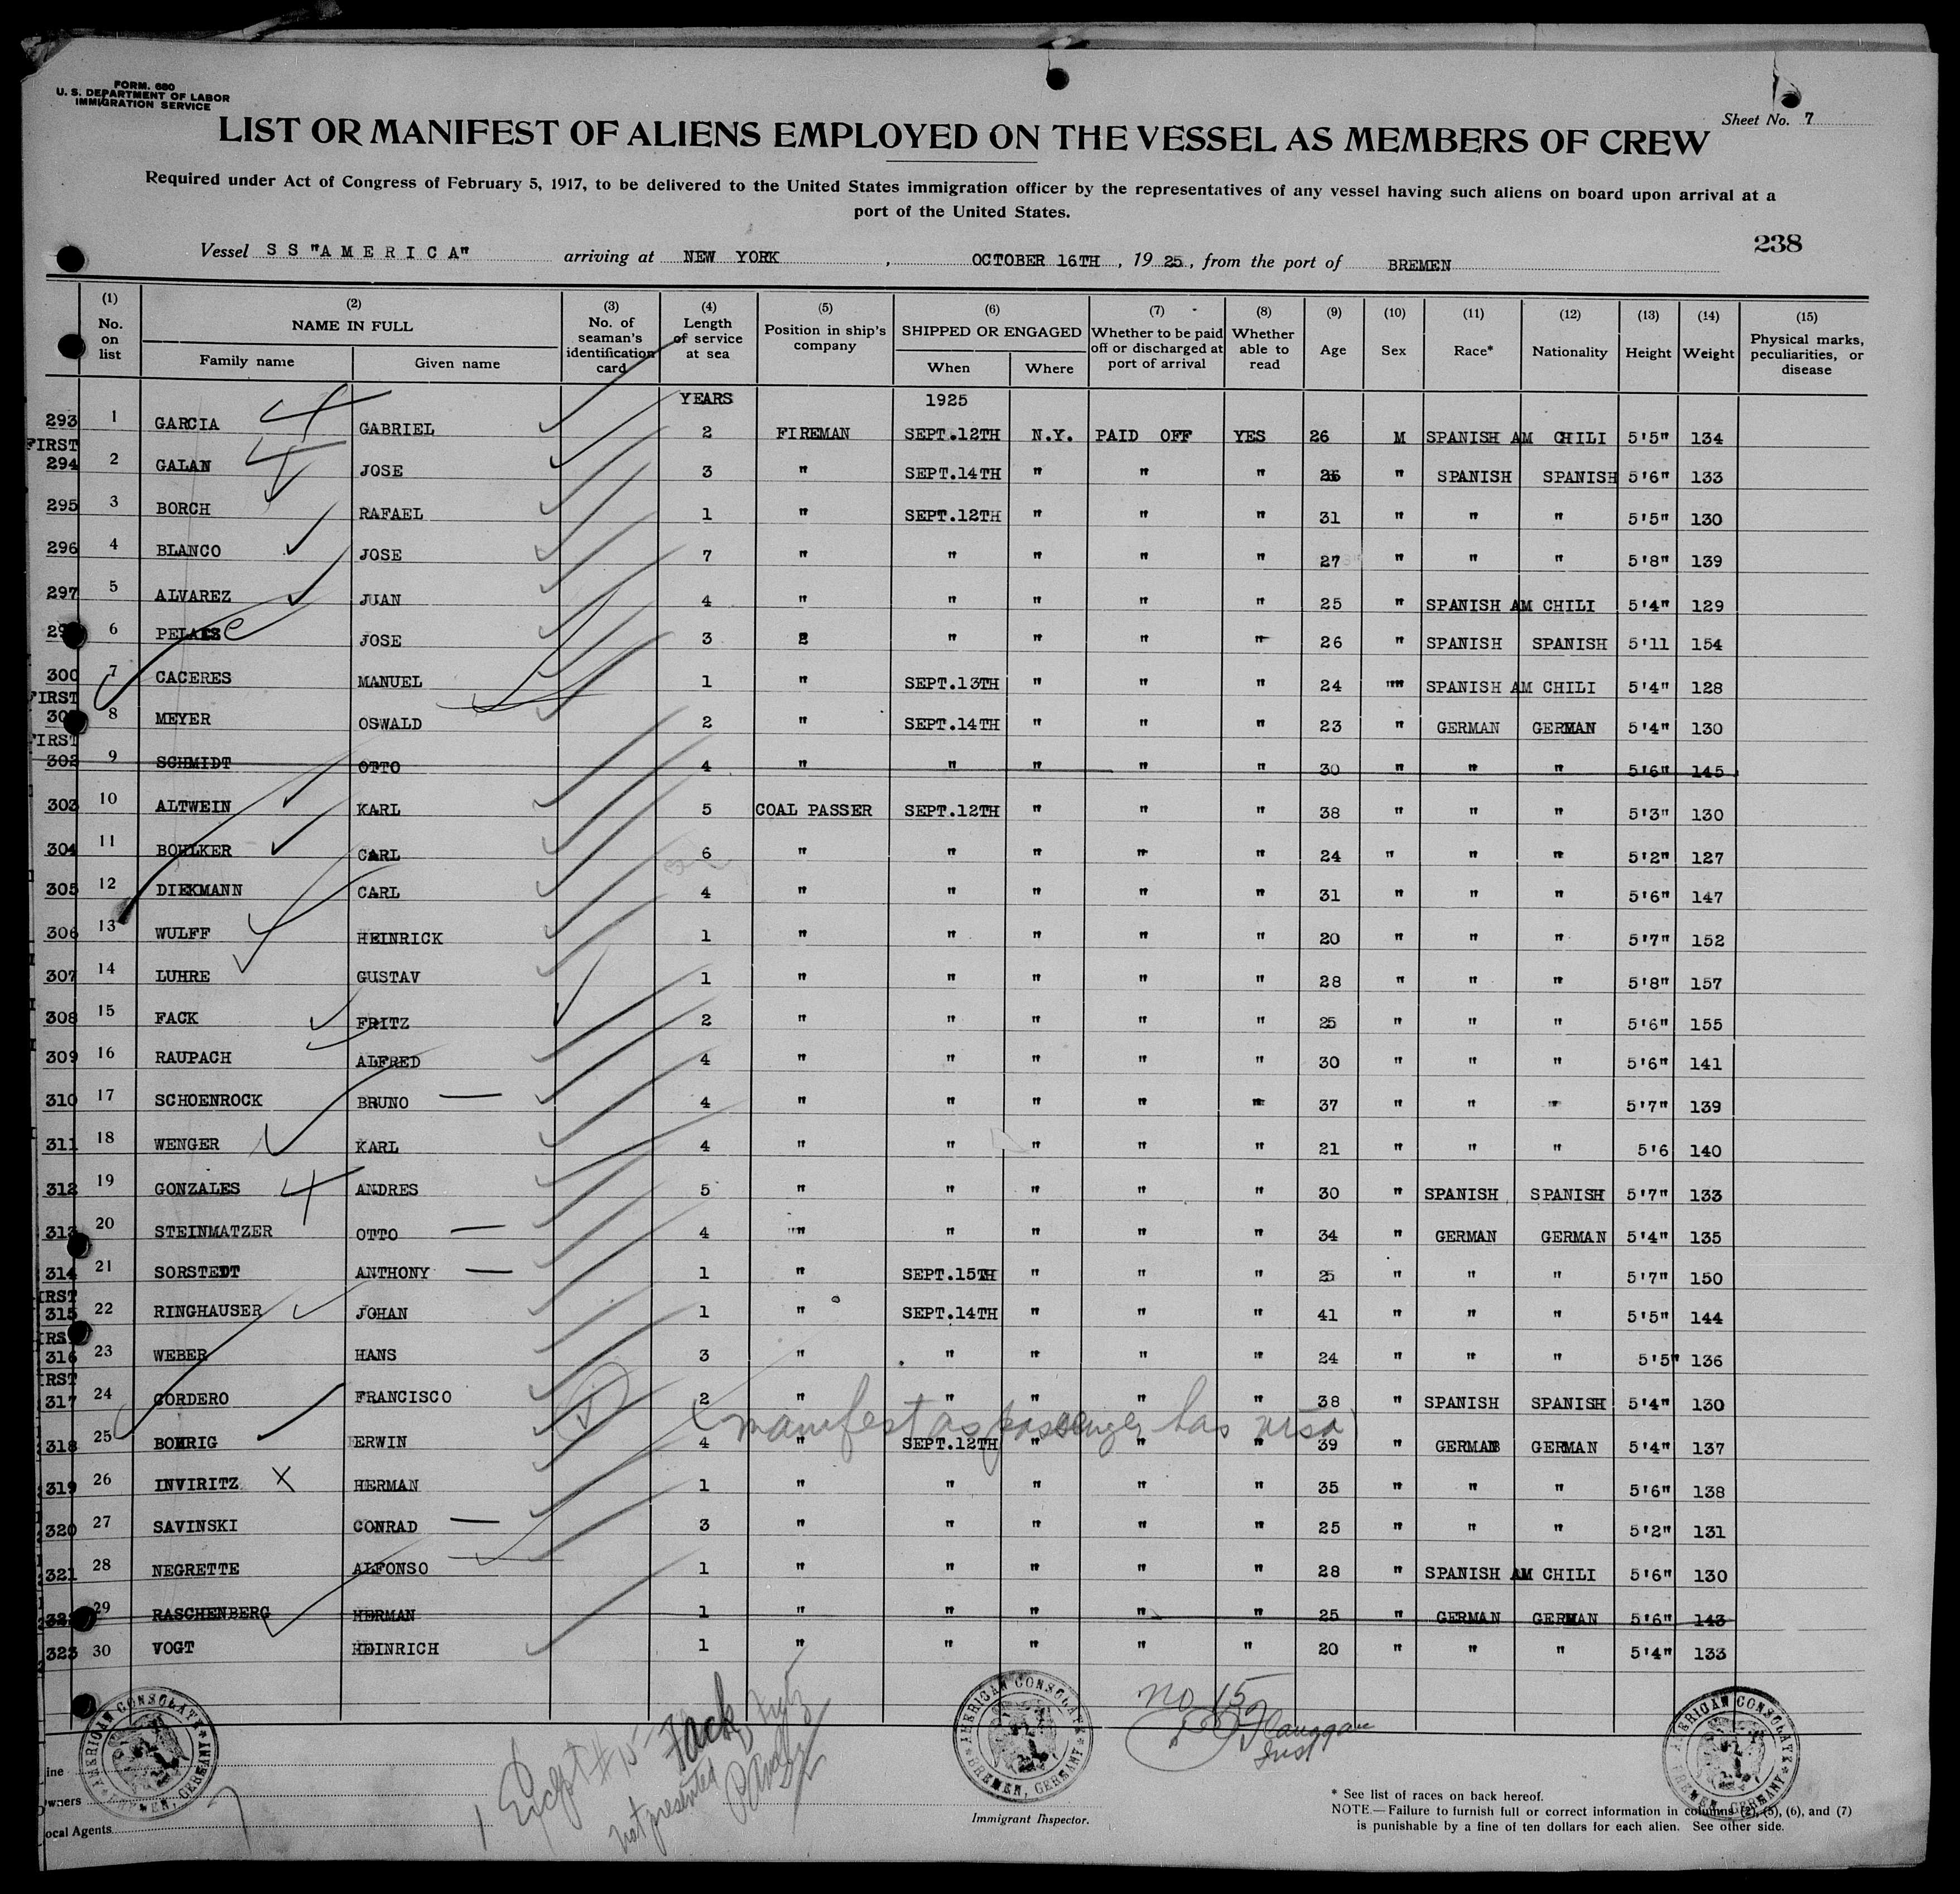 FORM. 680
U. S. DEPARTMENT OF LABOR
IMMIGRATION SERVICE
Sheet No. 7
LIST OR MANIFEST OF ALIENS EMPLOYED ON THE VESSEL AS MEMBERS OF CREW
Required under Act of Congress of February 5, 1917, to be delivered to the United States immigration officer by the representatives of any vessel having such aliens on board upon arrival at a
port of the United States.
238
Vessel S S "A M E R I C A" arriving at NEW YORK , OCTOBER 16TH , 19 25 , from the port of BREMEN
(1) No. on list (2) NAME IN FULL Family name Given name (3) No. of seaman's identification card (4) Length of service at sea (5) Position in ship's company (6) SHIPPED OR ENGAGED When Where (7) Whether to be paid off or discharged at port of arrival (8) Whether able to read (9) Age (10) Sex (11) Race* (12) Nationality (13) Height (14) Weight (15) Physical marks, peculiarities, or disease
YEARS 1925
293 1 GARCIA GABRIEL 2 FIREMAN SEPT.12TH N.Y. PAID OFF YES 26 M SPANISH AM CHILI 5'5" 134
FIRST
294 2 GALAN JOSE 3 " SEPT.14TH " " " " SPANISH SPANISH 5'6" 133
295 3 BORCH RAFAEL 1 " SEPT.12TH " " " 31 " " " 5'5" 130
296 4 BLANCO JOSE 7 " " " " " 27 " " " 5'8" 139
297 5 ALVAREZ JUAN 4 " " " " " 25 " SPANISH AM CHILI 5'4" 129
6 JOSE 3 " " " " 26 " SPANISH SPANISH 5'11 154
300 7 CACERES MANUEL 1 " SEPT.13TH " " " 24 "" SPANISH AM CHILI 5'4" 128
FIRST
8 MEYER OSWALD 2 " SEPT.14TH " " " 23 " GERMAN GERMAN 5'4" 130
FIRST
302 9 SCHMIDT OTTO 4 " " " " " 30 " " " 5'6" 145
303 10 ALTWEIN KARL 5 COAL PASSER SEPT.12TH " " " 38 " " " 5'3" 130
304 11 BOHLKER CARL 6 " " " " " 24 " " " 5'2" 127
305 12 DIEKMANN CARL 4 " " " " " 31 " " " 5'6" 147
306 13 WULFF HEINRICK 1 " " " " " 20 " " " 5'7" 152
307 14 LUHRE GUSTAV 1 " " " " " 28 " " " 5'8" 157
308 15 FACK FRITZ 2 " " " " " 25 " " " 5'6" 155
309 16 RAUPACH ALFRED 4 " " " " " 30 " " " 5'6" 141
310 17 SCHOENROCK BRUNO 4 " " " " " 37 " " " 5'7" 139
311 18 WENGER KARL 4 " " " " " 21 " " " 5'6 140
312 19 GONZALES ANDRES 5 " " " " " 30 " SPANISH SPANISH 5'7" 133
313 20 STEINMATZER OTTO 4 " " " " " 34 " GERMAN GERMAN 5'4" 135
314 21 SORSTEDT ANTHONY 1 " SEPT.15TH " " " 25 " " " 5'7" 150
IRST
315 22 RINGHAUSER JOHAN 1 " SEPT.14TH " " " 41 " " " 5'5" 144
IRST
316 23 WEBER HANS 3 " " " " " 24 " " " 5'5" 136
IRST
317 24 CORDERO FRANCISCO 2 " " " " " 38 " SPANISH SPANISH 5'4" 130
(manifest as passenger has visa)
318 25 BOHRIG ERWIN 4 " SEPT.12TH " " " 39 " GERMAN GERMAN 5'4" 137
319 26 INVIRITZ X HERMAN 1 " " " " " 35 " " " 5'6" 138
320 27 SAVINSKI CONRAD 3 " " " " " 25 " " " 5'2" 131
321 28 NEGRETTE ALFONSO 1 " " " " " 28 " SPANISH AM CHILI 5'6" 130
29 RASCHENBERG HERMAN 1 " " " " " 25 " GERMAN GERMAN 5'6" 143
323 30 VOGT HEINRICH 1 " " " " " 20 " " " 5'4" 133
AMERICAN CONSULATE BREMEN, GERMANY
Except #15 Fack, Fritz
not presented
AMERICAN CONSULATE BREMEN, GERMANY
no 15
Insp
AMERICAN CONSULATE BREMEN, GERMANY
ine
wners
ocal Agents
Immigrant Inspector.
* See list of races on back hereof.
NOTE.—Failure to furnish full or correct information in columns (2), (5), (6), and (7)
is punishable by a fine of ten dollars for each alien. See other side.